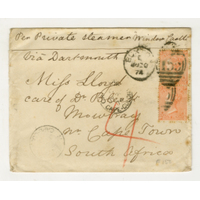 Per Private steamer Windsor Castle
Via Dartmouth
Miss Lloyd
care of Dr Bleek
Mowbray
Nr Cape Town
South Africa